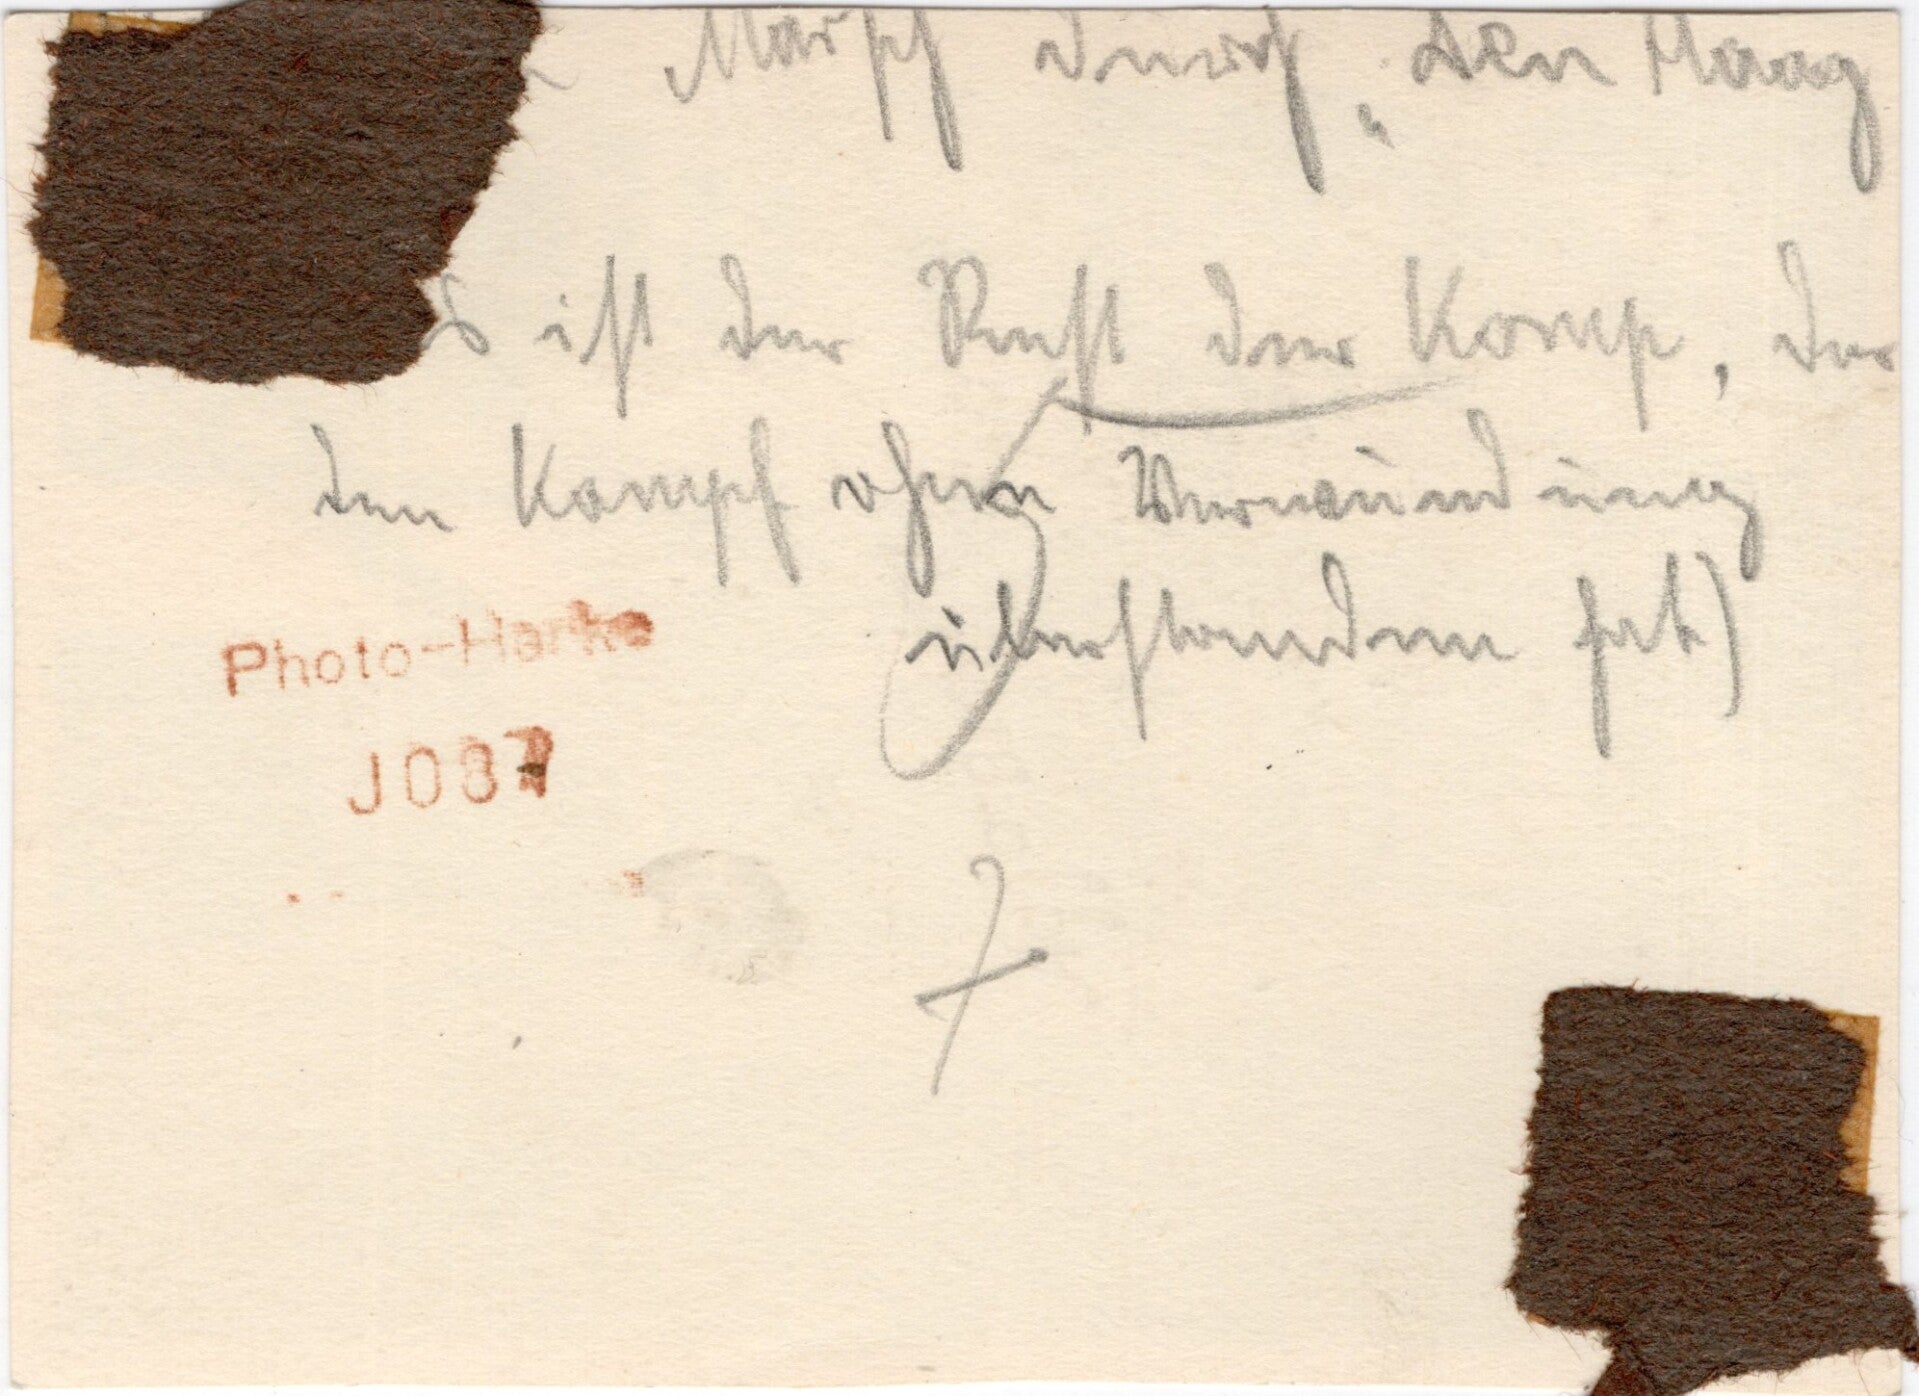 Marsch durch „Den Haag
s ist der Rest der Komp, der
den Kampf ohne Verwundung
überstanden hat)
Photo-Harke
J087